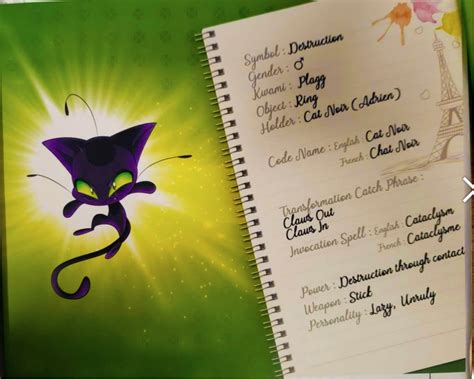 Symbol : Destruction
Gender : ♂
Kwami : Plagg
Object : Ring
Holder : Cat Noir (Adrien)
Code Name : English : Cat Noir
French : Chat Noir
Transformation Catch Phrase :
Claws Out
Claws In
Invocation Spell : English : Cataclysm
French : Cataclysme
Power : Destruction through contact
Weapon : Stick
Personality : Lazy, Unruly